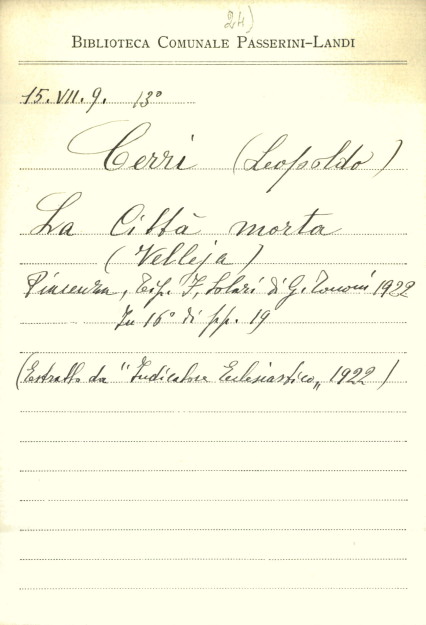 24)
BIBLIOTECA COMUNALE PASSERINI-LANDI
15.VII.9. 13°
Cerri (Leopoldo)
La Città morta
(Velleja)
Piacenza, Tip. F. Solari di G. Tononi 1922
In 16° di pp. 19
(Estratto da "Indicatore Ecclesiastico„ 1922)